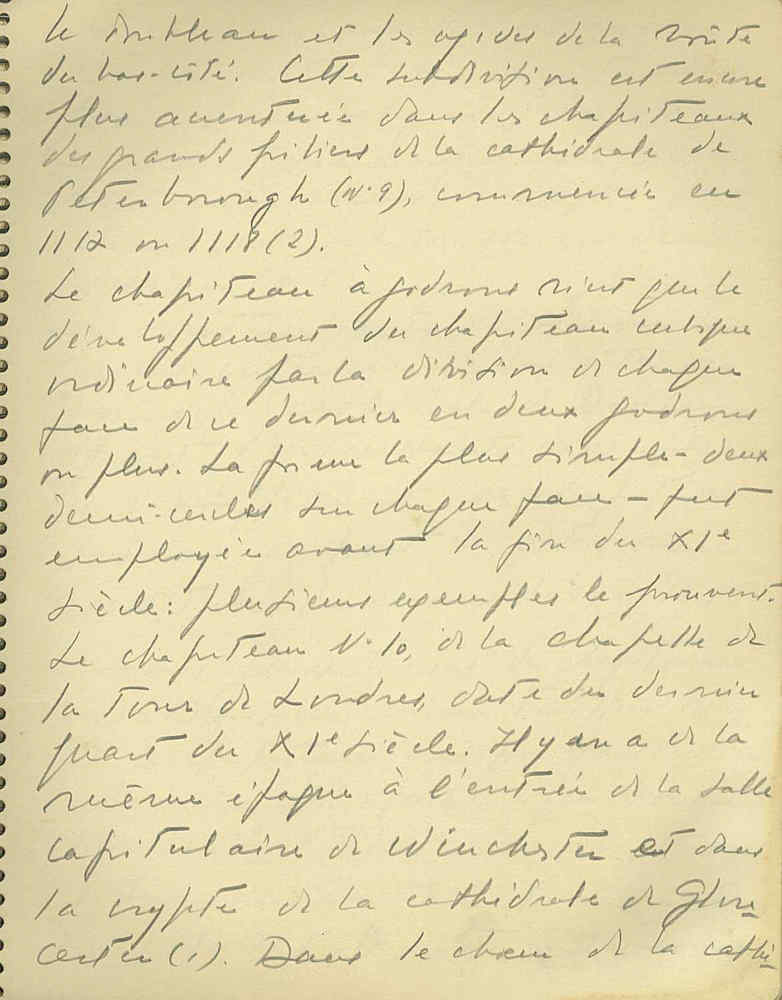 le doubleau et les ogives de la voûte
du bas-côté. Cette subdivision est encore
plus accentuée dans les chapiteaux
des grands piliers de la cathédrale de
Peterborough (N° 9), commencée en
1117 ou 1118 (2).
Le chapiteau à godrons n'est que le
développement du chapiteau cubique
ordinaire par la division de chaque
face de ce dernier en deux godrons
ou plus. La forme la plus simple - deux
demi-cercles sur chaque face - fut
employée avant la fin du XIe
siècle: plusieurs exemples le prouvent.
Le chapiteau N° 10, de la chapelle de
la Tour de Londres, date du dernier
quart du XIe siècle. Il y en a de la
même époque à l'entrée de la salle
capitulaire de Winchester et dans
la crypte de la cathédrale de Glou-
cester (1). Dans le chœur de la cathé-